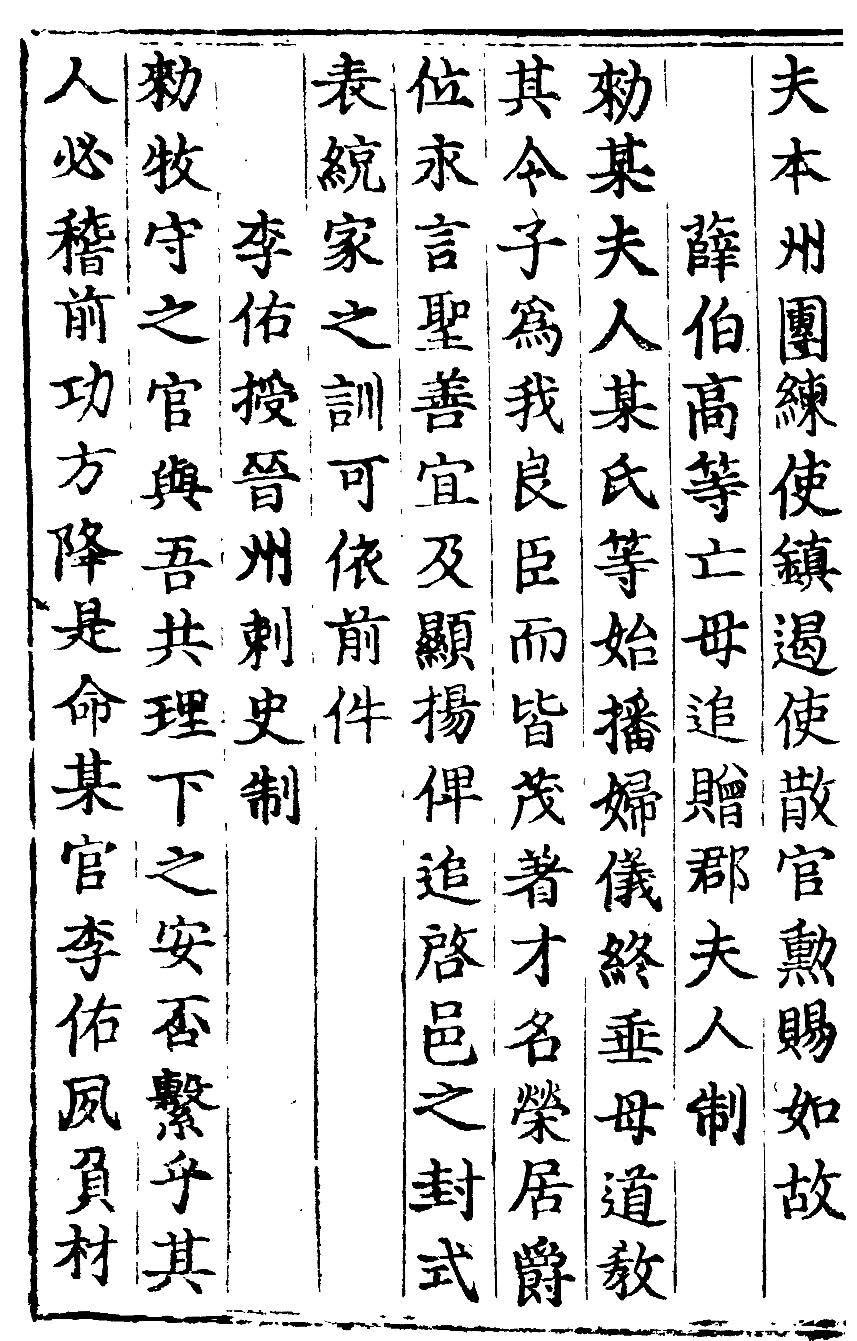 夫本州團練使鎮遏使散官勲賜如故
薛伯高等亡母追贈郡夫人制
勑某夫人某氏等始播婦儀終垂母道教
其令子爲我良臣而皆茂著才名榮居爵
位永言聖善宜及顯揚俾追啓邑之封式
表統家之訓可依前件
李佑授晉州刺史制
勑牧守之官與吾共理下之安否繫乎其
人必稽前功方降是命某官李佑夙負材